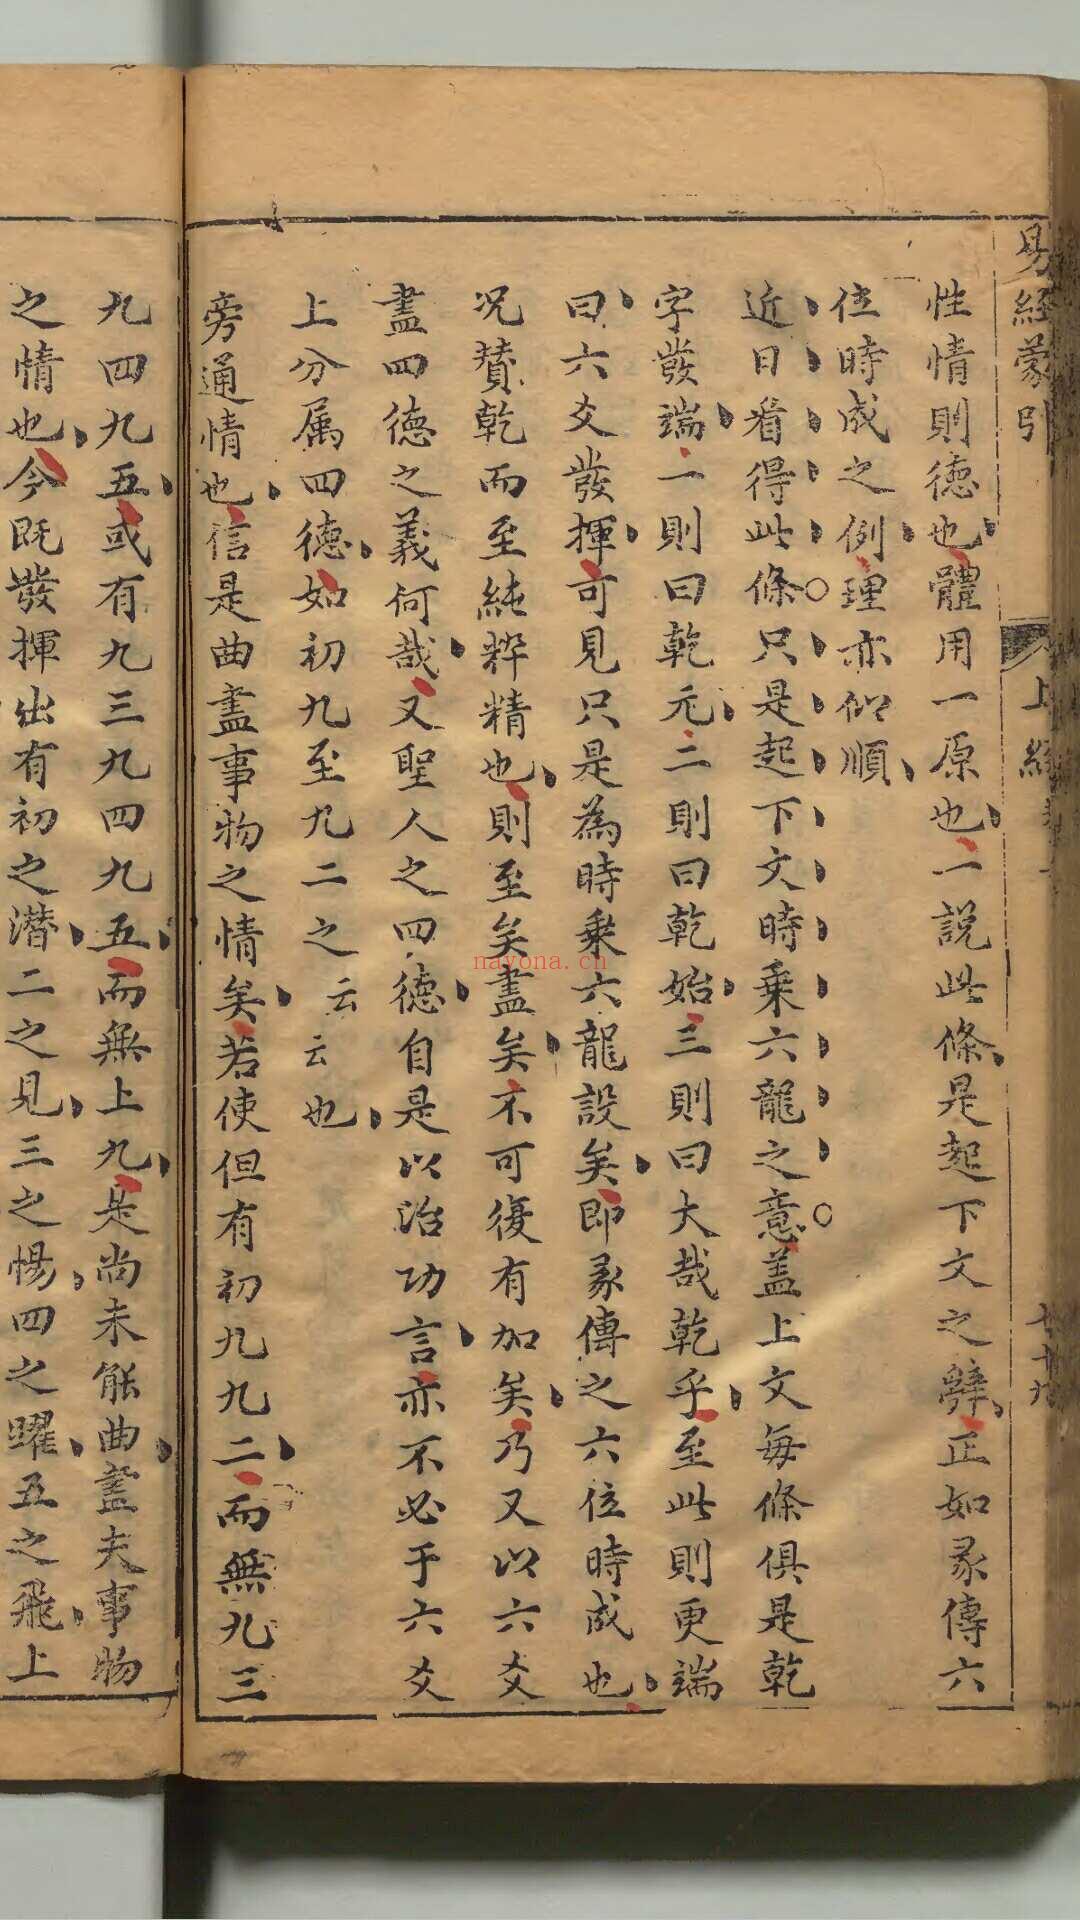 易經蒙引
上經
性情則德也體用一原也一說此條是起下文之辭正如彖傳六
位時成之例理亦似順
近日看得此條只是起下文時乗六龍之意盖上文每條俱是乾
字發端一則曰乾元二則曰乾始三則曰大哉乾乎至此則更端
曰六爻發揮可見只是為時乗六龍設矣即彖傳之六位時成也
况賛乾而至純粹精也則至矣盡矣不可復有加矣乃又以六爻
盡四德之義何哉又聖人之四德自是以治功言亦不必于六爻
上分属四德如初九至九二之云云也
旁通情也信是曲盡事物之情矣若使但有初九九二而無九三
九四九五或有九三九四九五而無上九是尚未能曲盡夫事物
之情也今既發揮出有初之潜二之見三之惕四之曜五之飛上
nayona.cn